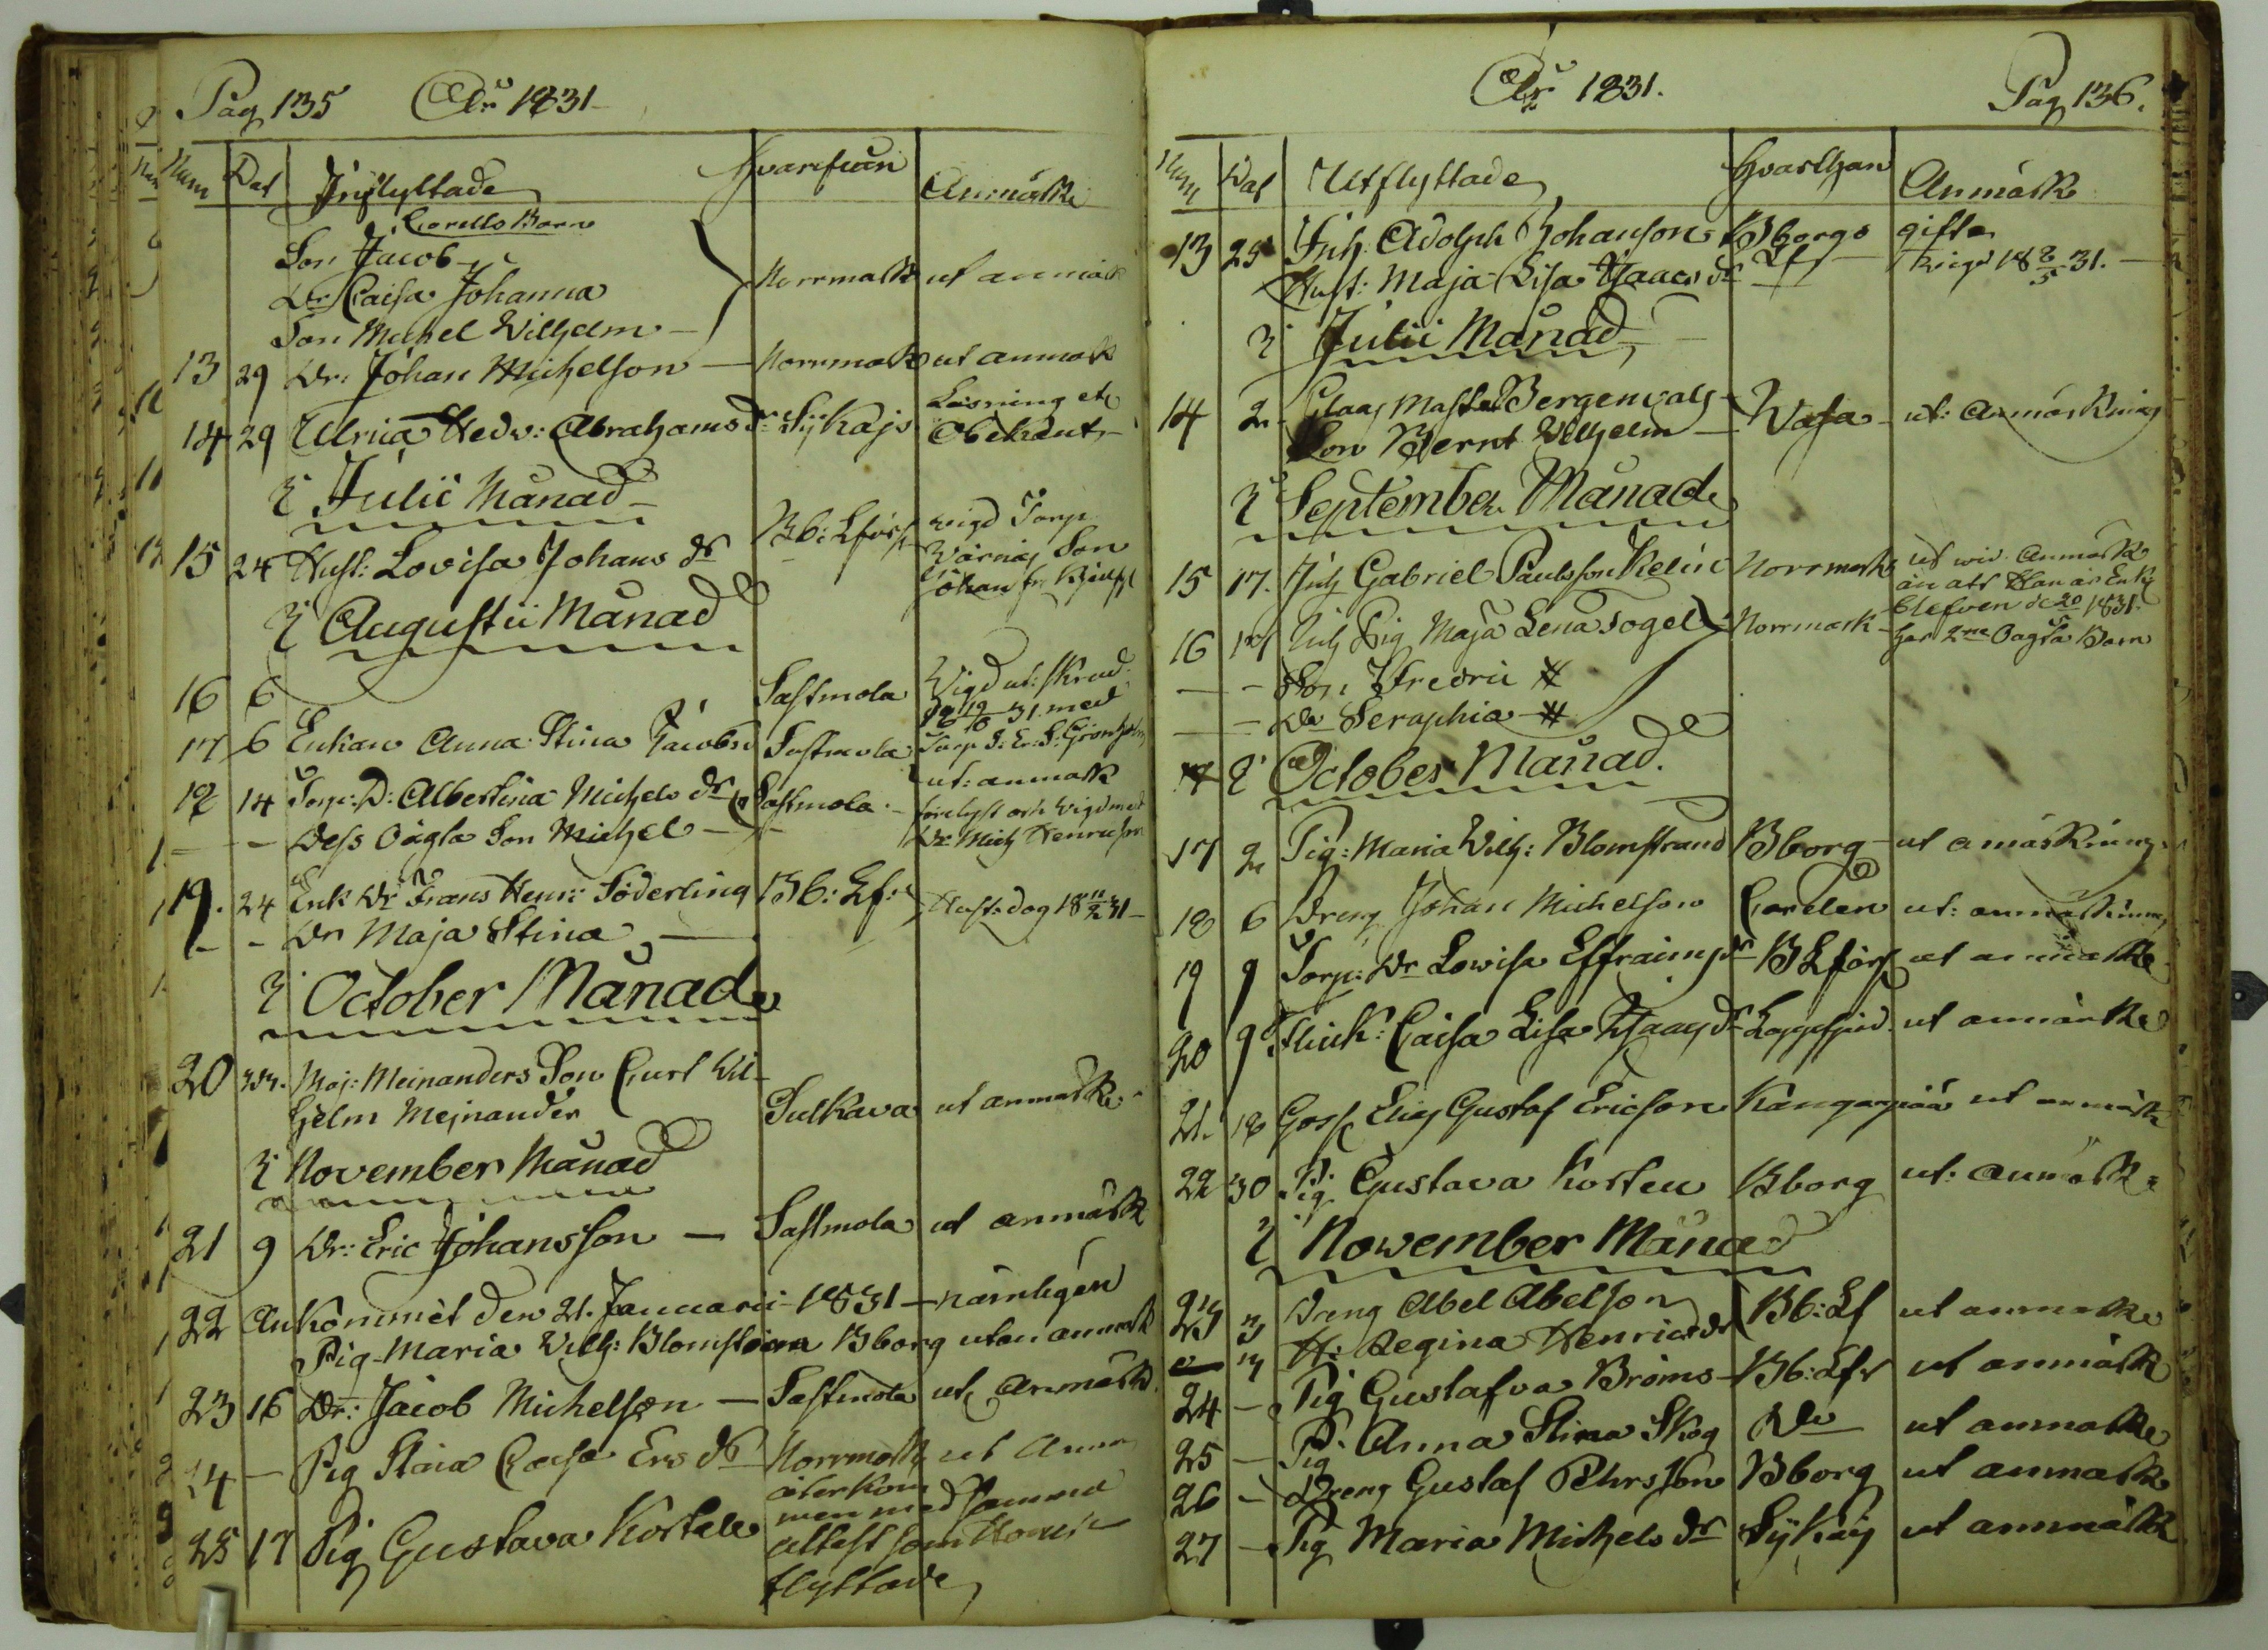 Pag 135 År 1831
Num Dat Inflyttade Hvarifrån Anmärk
Carells Barn
Son Jacob
Dr Caisa Johanna Norrmark ut anmärk
Son Michel Wilhelm
13 29 Dr: Johan Michelson Norrmark ut anmärk
14 29 Ulrica Hedv: Abrahams dr Läsning etc
Obekant
I Julii Månad
15 24 Hust: Lovisa Johans dr Bb: Lförs wigd Torp
Son
Johan fr
I Augustii Månad
16 6 Sastmola Wigd ut:
31 med
17 6 Enkan Anna Stina Jacobs Sastmola Torp
ut: anmärk
18 14 Torp: D: Albertina Michels dr Sastmola och wigd med
– – Dess Oägta Son Michel Dr: Mich Henricson
19. 24 Enk Dr Frans Henr: Söderling Bb: Lf: 31
– – Dr Maja Stina
I October Månad
20 Maj: Meinanders Son Curt Wil-
helm Mejnander Sulkava ut anmärk
I November Månad
21 9 Dr: Eric Johansson Sastmola ut anmärk
22 Ankommit den 21. Januarii 1831 nämligen
Pig Maria Wilh: Bborg utan anmärk
23 16 Dr: Jacob Michelson Sastmola ut anmärk
24 – Pig Caisa Ers dr Norrmark ut Anm
återkom
men med samma
25 17 Pig Gustava Kortela attest som Honin
flyttade
År 1831. Pag 136.
Num Dat Utflyttade Hvarthän Anmärk
13 25 Inh: Adolph Johanson Bborgs gifta
Hust: Maja Lisa Isaacs dr Lf wigd 18 8/5 31.
I Julii Månad
14 2 Bergenvals
Son Bernt Wilhelm Wasa ut: Anmärkning
I September Månad
15 17. Inh Gabriel Paulsson Kelin Norrmark ut wid Anmärk
än att Han är Enkl
blefven 1831
16 17 Inh Pig Maja Lena Fogel Norrmark har 2ne Oägta Barn
– – Son Fredric #
– – Dr Seraphia #
I October Månad.
17 2 Pig: Maria Wilh: Blomstrand Bborg ut amärkning
18 6 Dreng Johan Michelson Carelen ut: anmärkning
19 9 Torp: Dr Lowisa Effraims dr BLförs ut anmärk
20 9 Flick: Caisa Lisa Isaacs dr Lappfjerd ut anmärk
21. 18 Goss Elias Gustaf Ericson Kangasniä ut anmärk
22 30 Pig Gustava Korten Bborg ut: anmärk
I Nowember Månad
23 3 Dreng Abel Abelson Bb: Lf ut anmärk
3 H: Regina Henrics dr
24 – Pig Gustafva Bröms Bb: Lfs ut anmärk
25 – Pig Anna Stina Skog Do ut anmärk
26 – Dreng Gustaf Pehrsson Bborg ut anmärk
27 – Pig Maria Michels dr ut anmärk